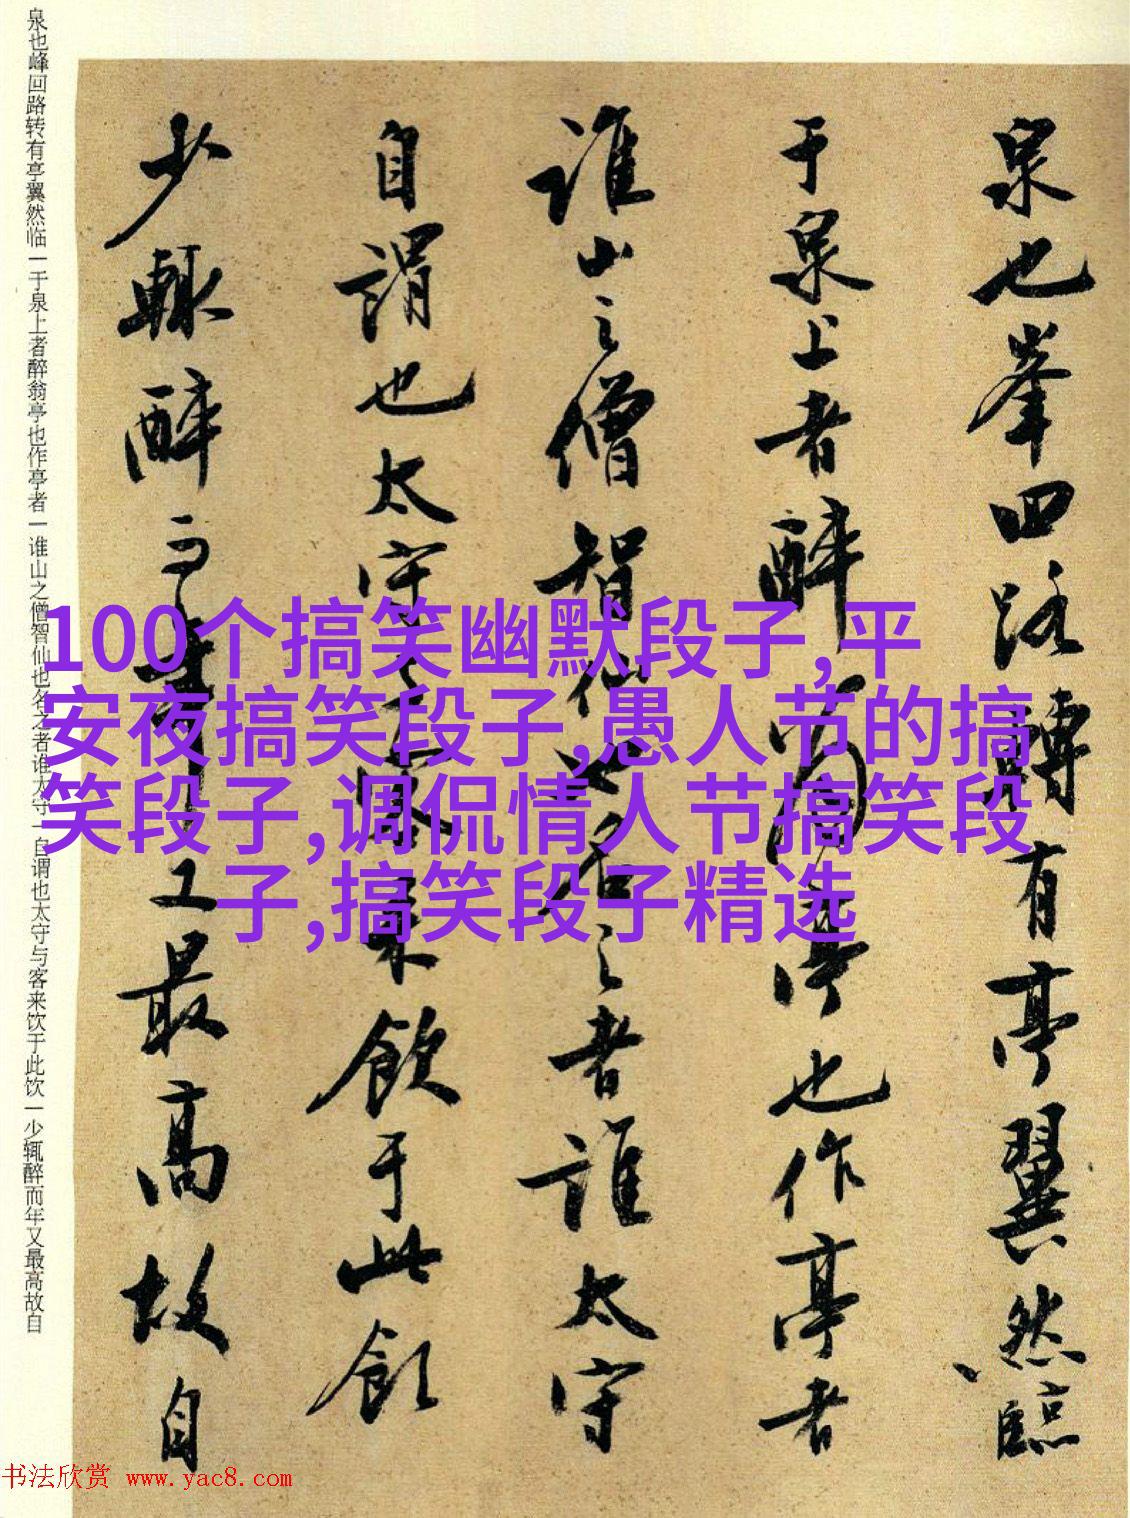 泉也峰回路转有亭翼然临一于泉上者醉翁亭也作亭者一谁山之僧智仙也名之者谁太守一自谓也太守与客来饮于此饮一少辄醉而年又最高故自
泉也峯回路轉有亭翼然臨
于泉上者醉翁亭也作亭者
誰山之僧智仙也名之者誰太守
自謂也太守与客来飲于此飲
少輒醉而年又最高故自
100个搞笑幽默段子,平
安夜搞笑段子,愚人节的搞
笑段子,调侃情人节搞笑段
子,搞笑段子精选
书法欣赏 www.yac8.com